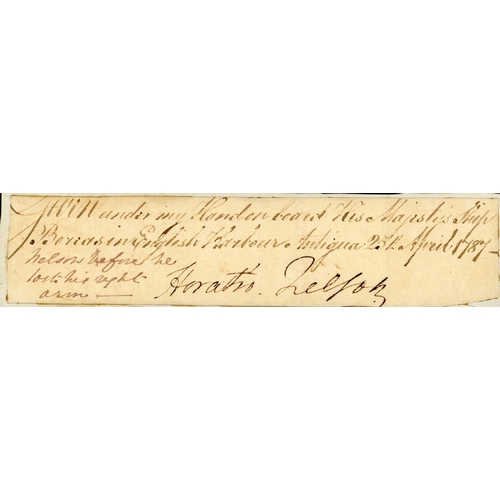 Given under my Hand on board His Majesty's Ship
Boreas in English Harbour Antigua 25th April 1787 –
nelson before he
lost his right
arm —
Horatio Nelson